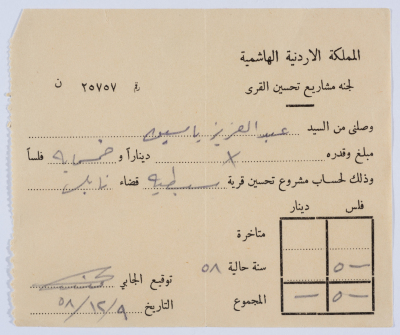 المملكة الاردنية الهاشمية
لجنه مشاريع تحسين القرى
رقم ٢٥٧٥٧ ن
وصلني من السيد عبد العزيز ياسين
مبلغ وقدره x ديناراً و خمسماية فلساً
وذلك لحساب مشروع تحسين قرية سبسطية قضاء نابلس
فلس دينار
متاخرة
سنة حالية ٥٨ ٥٠٠ —
المجموع ٥٠٠ —
توقيع الجابي
التاريخ ٥٨/١٢/٩